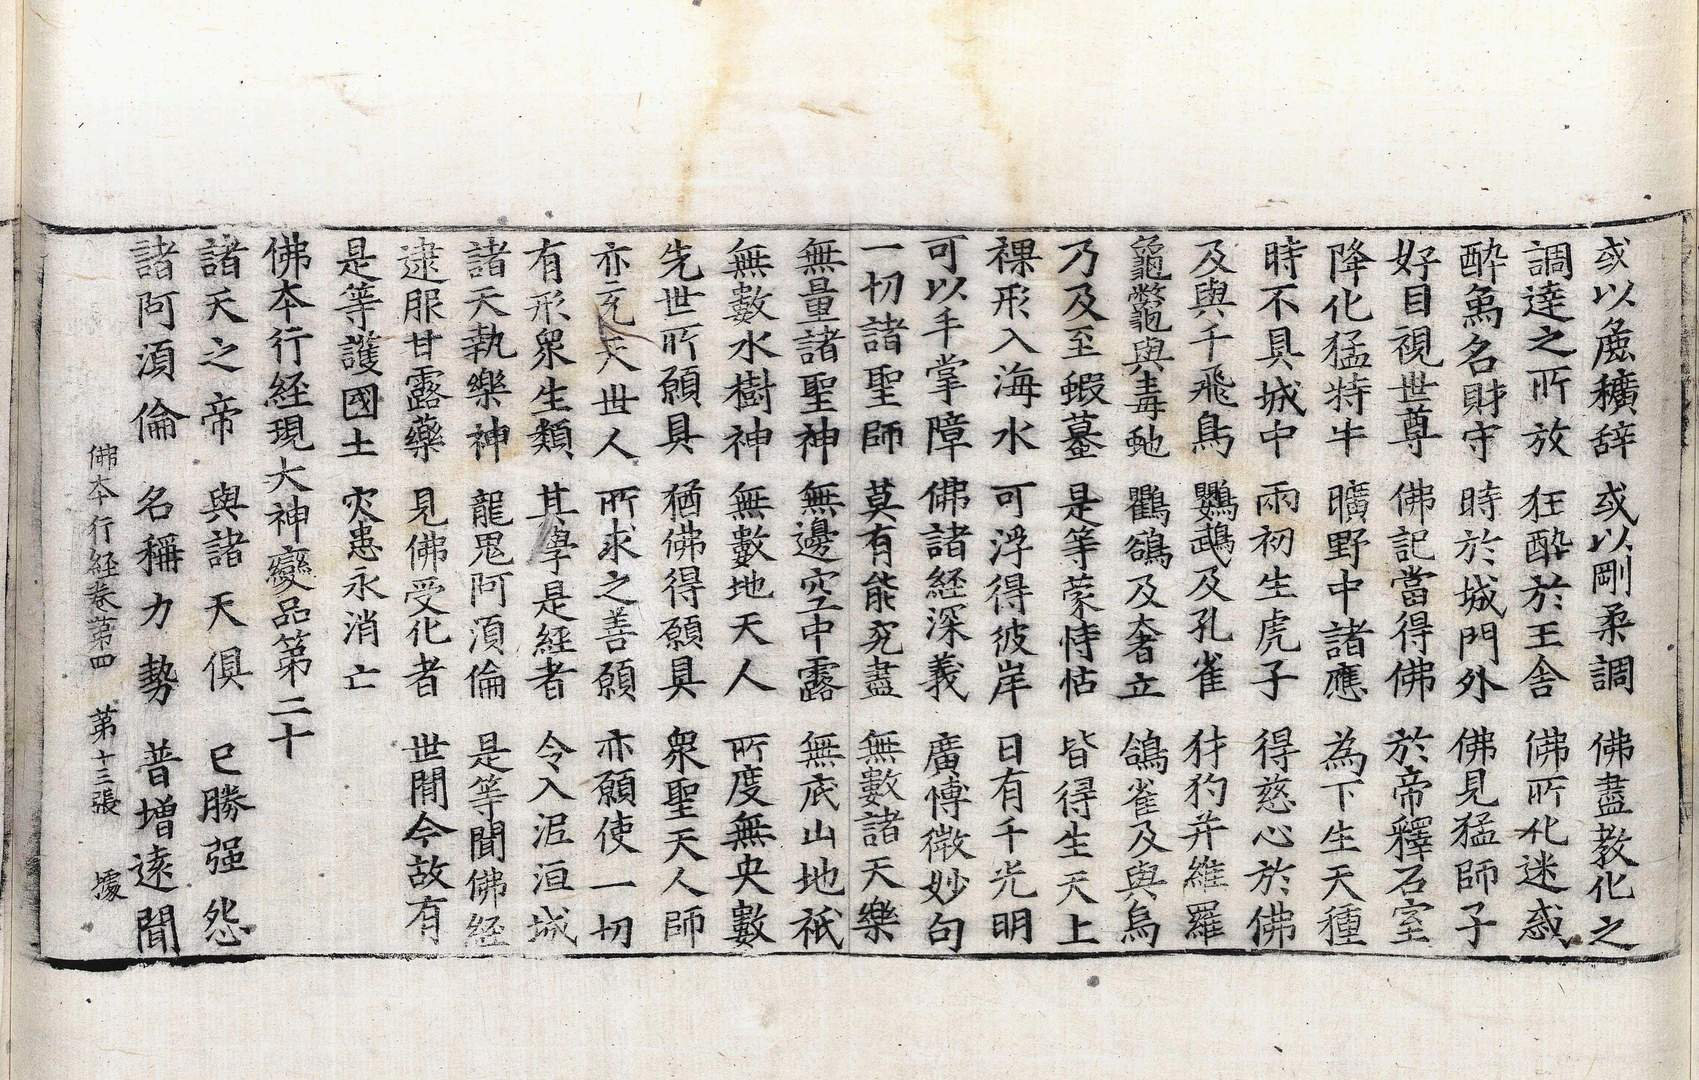 或以麁穬辞 或以剛柔調 佛盡教化之
調達之所放 狂酔於王舍 佛所化迷惑
酔象名財守 時於城門外 佛見猛師子
好目視世尊 佛記當得佛 於帝釋石室
降化猛特牛 曠野中諸應 為下生天種
時不具城中 雨初生虎子 得慈心於佛
及與千飛鳥 鸚鵡及孔雀 犲犳并維羅
龜鼈黿與毒虵 鸜鵒及奢立 鴿雀及與鳥
乃及至蝦蟇 是等蒙恃怙 皆得生天上
裸形入海水 可浮得彼岸 日有千光明
可以手掌障 佛諸経深義 廣博微妙句
一切諸聖師 莫有能究盡 無數諸天樂
無量諸聖神 無邊空中露 無底山地祇
無數水樹神 無數地天人 所度無央數
先世所願具 猶佛得願具 衆聖天人師
亦三充天世人 所求之善願 亦願使一切
有形衆生類 其學是経者 令入泥洹城
諸天執樂神 龍鬼阿湏倫 是等聞佛経
逮服甘露藥 見佛受化者 世間今故有
是等護國土 灾患永消亡
佛本行経現大神變品第二十
諸天之帝 與諸天俱 已勝强怨
諸阿湏倫 名稱力勢 普增遠聞
佛本行経卷第四 第十三張 據